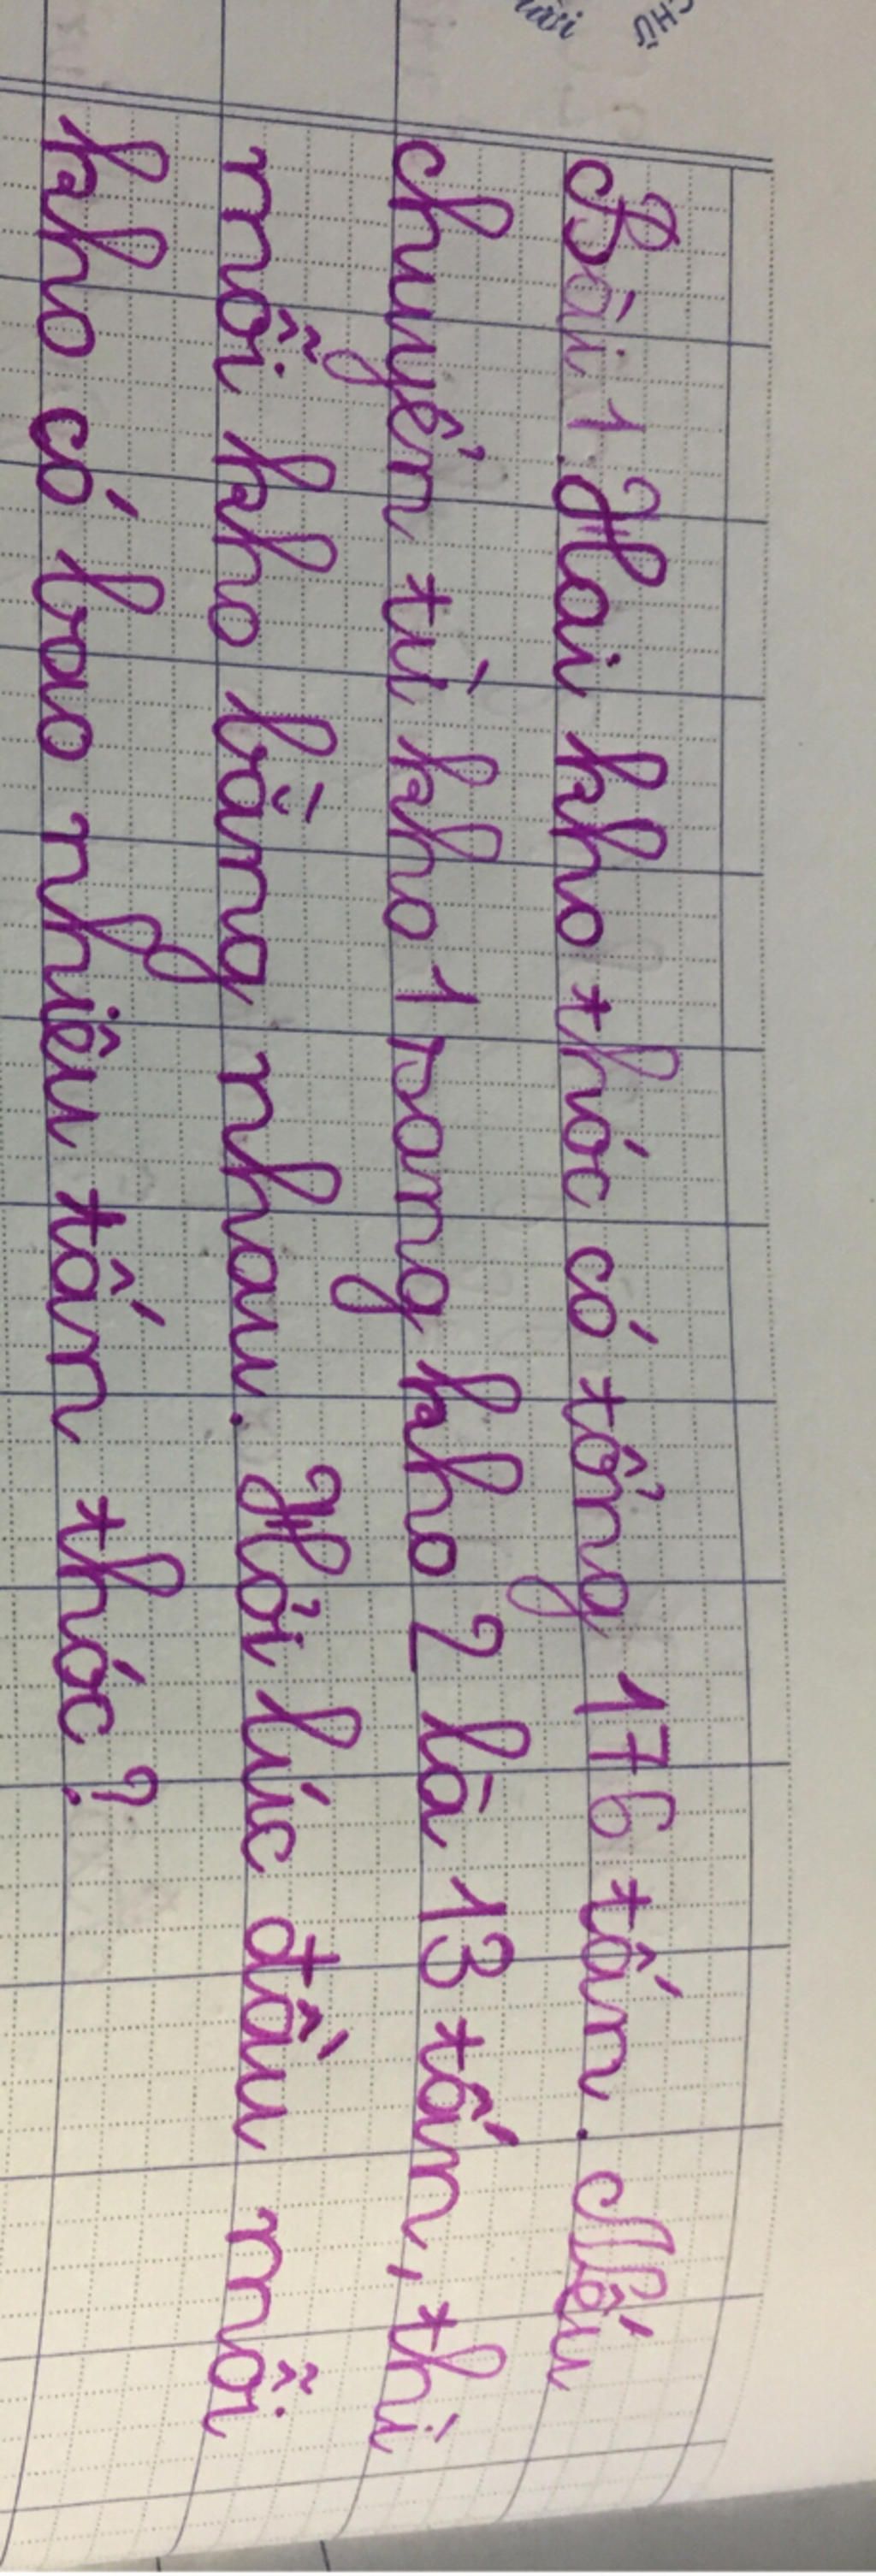 CHỮ
Bài 1. Hai kho thóc có tổng 176 tấn. Nếu
chuyển từ kho 1 sang kho 2 là 13 tấn, thì
mỗi kho bằng nhau. Hỏi lúc đầu mỗi
kho có bao nhiêu tấn thóc?